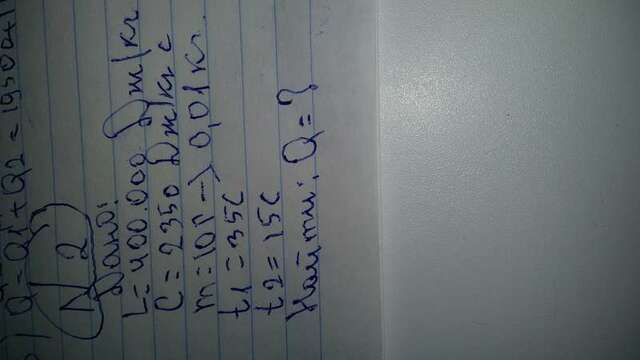 ) Q = Q1 + Q2 = 19500 + 1
N 2
Дано:
L = 400.000 Дж/кг
C = 2350 Дж/кг с
m = 10г -> 0,01 кг.
t1 = 35С
t2 = 15С
Найти: Q = ?